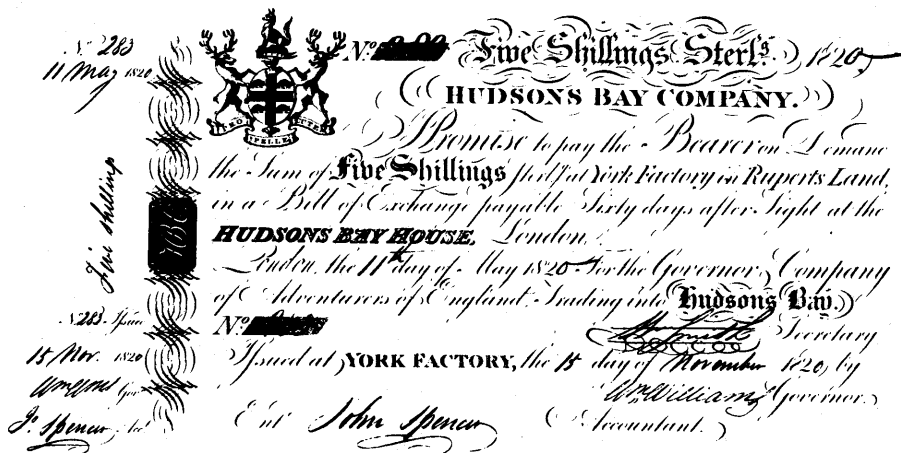 No. 283
11 May 1820
Five Shilling
HBC
No. 283 Issue
15 Nov. 1820
Gov
Jo. Spencer, Acct
PRO PELLE CUTEM
No. Five Shillings Sterlg. 1820
HUDSONS BAY COMPANY.
I Promise to pay the Bearer on Demand
the Sum of Five Shillings Sterlg. at York Factory in Ruperts Land,
in a Bill of Exchange payable Sixty days after Sight at the
HUDSONS BAY HOUSE, London.
London, the 11th day of May 1820 For the Governor & Company
of Adventurers of England, Trading into Hudsons Bay.
No. Wm Smith Secretary
Issued at YORK FACTORY, the 15 day of November 1820, by
Wm. Williams Governor.
Entd. John Spencer Accountant.